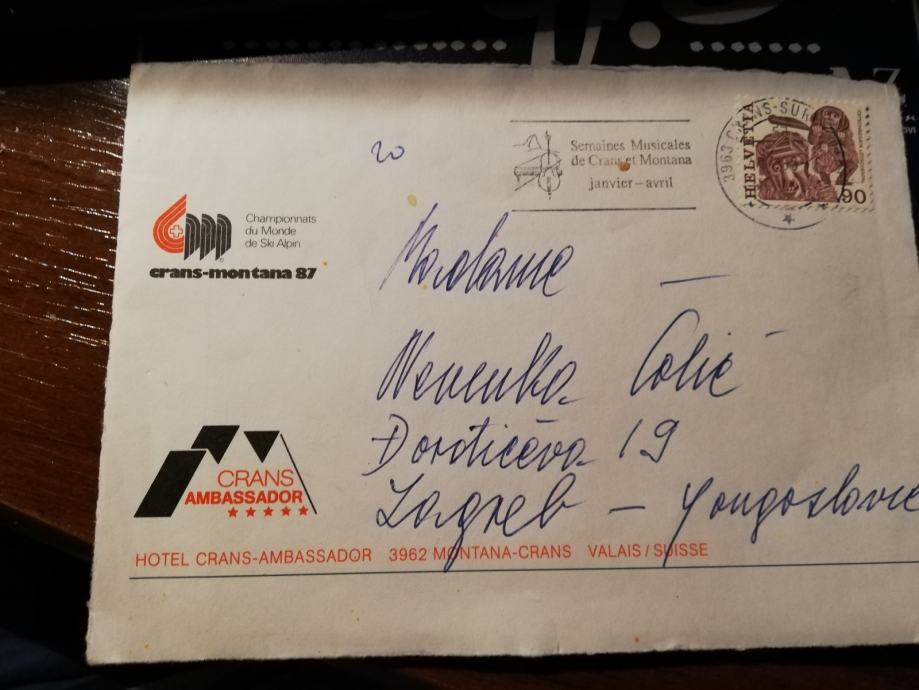 20
Semaines Musicales
de Crans et Montana
janvier-avril
3963 CRANS-SUR
HELVETIA
90
Championnats
du Monde
de Ski Alpin
crans-montana 87
Madame —
Nevenka Čolić
Đorđićeva 19
Zagreb - Yougoslavie
CRANS
AMBASSADOR
HOTEL CRANS-AMBASSADOR 3962 MONTANA-CRANS VALAIS / SUISSE